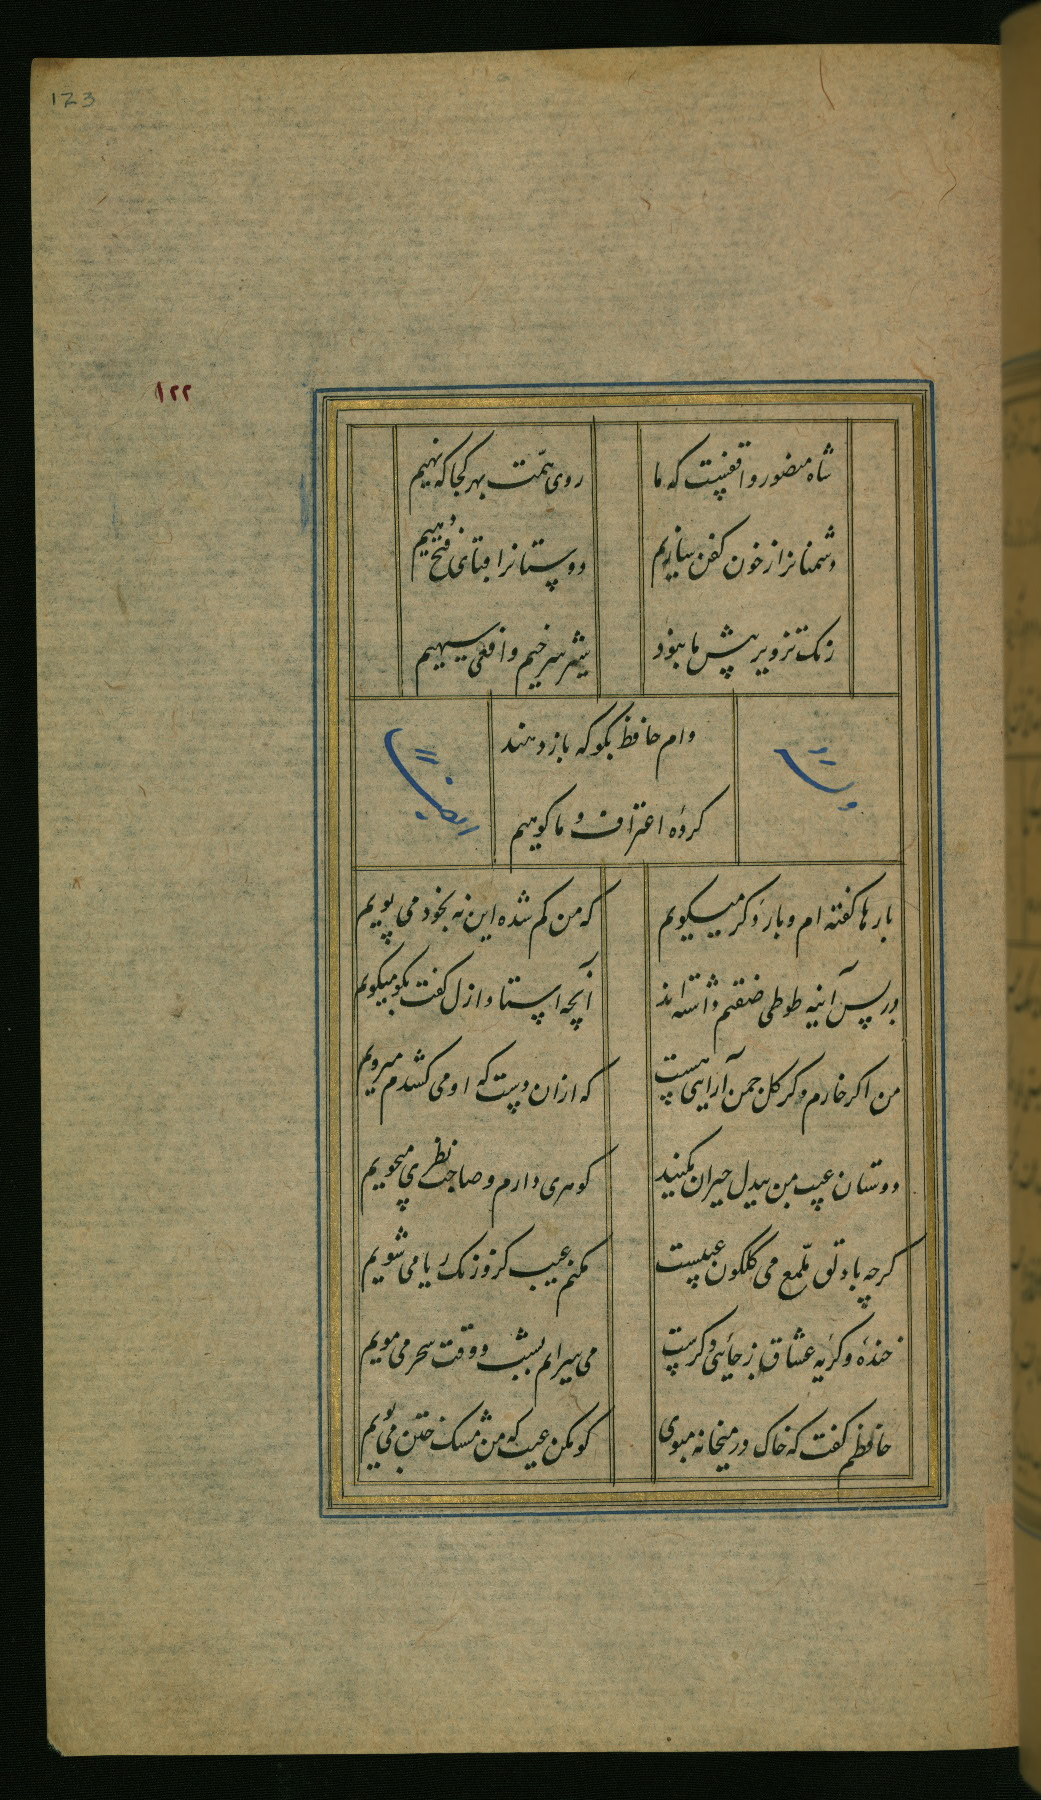 123
۱۲۲
شاه منصور واقفست که ما روی همت بهر کجا که نهیم
دشمنانرا ز خون کفن سازیم دوستانرا قبای فتح دهیم
رنک تزویر پیش ما نبود شیر سرخیم و افعی سیهیم
وام حافظ بکو که باز دهند
کرده اعتراف و ما کوهیم
وله ایضا
بارها کفته ام و بار دکر میکویم که من کم شده این نه بخود می پویم
در پس آینه طوطی صفتم داشته اند آنچه استاد ازل کفت بکو میکویم
من اکر خارم و کر کل چمن آرایی هست که از آن دست که او می کشدم میرویم
دوستان عیب من بیدل حیران مکنید کوهری دارم و صاحب نظری میجویم
کرچه با دلق ملمع می کلکون عیبست مکنم عیب کزو رنک ریا می شویم
خنده و کریه عشاق ز جائی دکرست می سرایم بشب و وقت سحر می مویم
حافظم کفت که خاک در میخانه مبوی کو مکن عیب که من مشک ختن می بویم